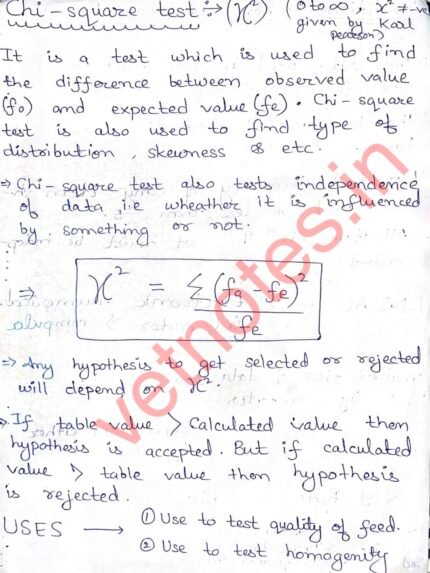 Chi-square test :→ (χ²) (0 to ∞, χ² ≠ -ve
given by Karl
pearson)
It is a test which is used to find
the difference between observed value
(fo) and expected value (fe). Chi-square
test is also used to find type of
distribution, skewness & etc.
⇒ Chi-square test also tests independence
of data i.e wheather it is influenced
by something or not.
⇒ χ² = Σ (fo - fe)²
fe
⇒ Any hypothesis to get selected or rejected
will depend on χ².
If table value > Calculated value then
hypothesis is accepted. But if calculated
value > table value then hypothesis
is rejected.
USES → ① Use to test quality of feed.
② Use to test homogenity
vetnotes.in